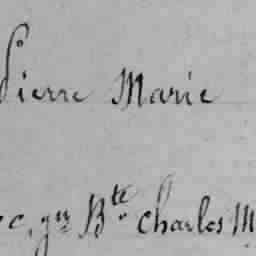 Pierre Marie
Bte Charles M